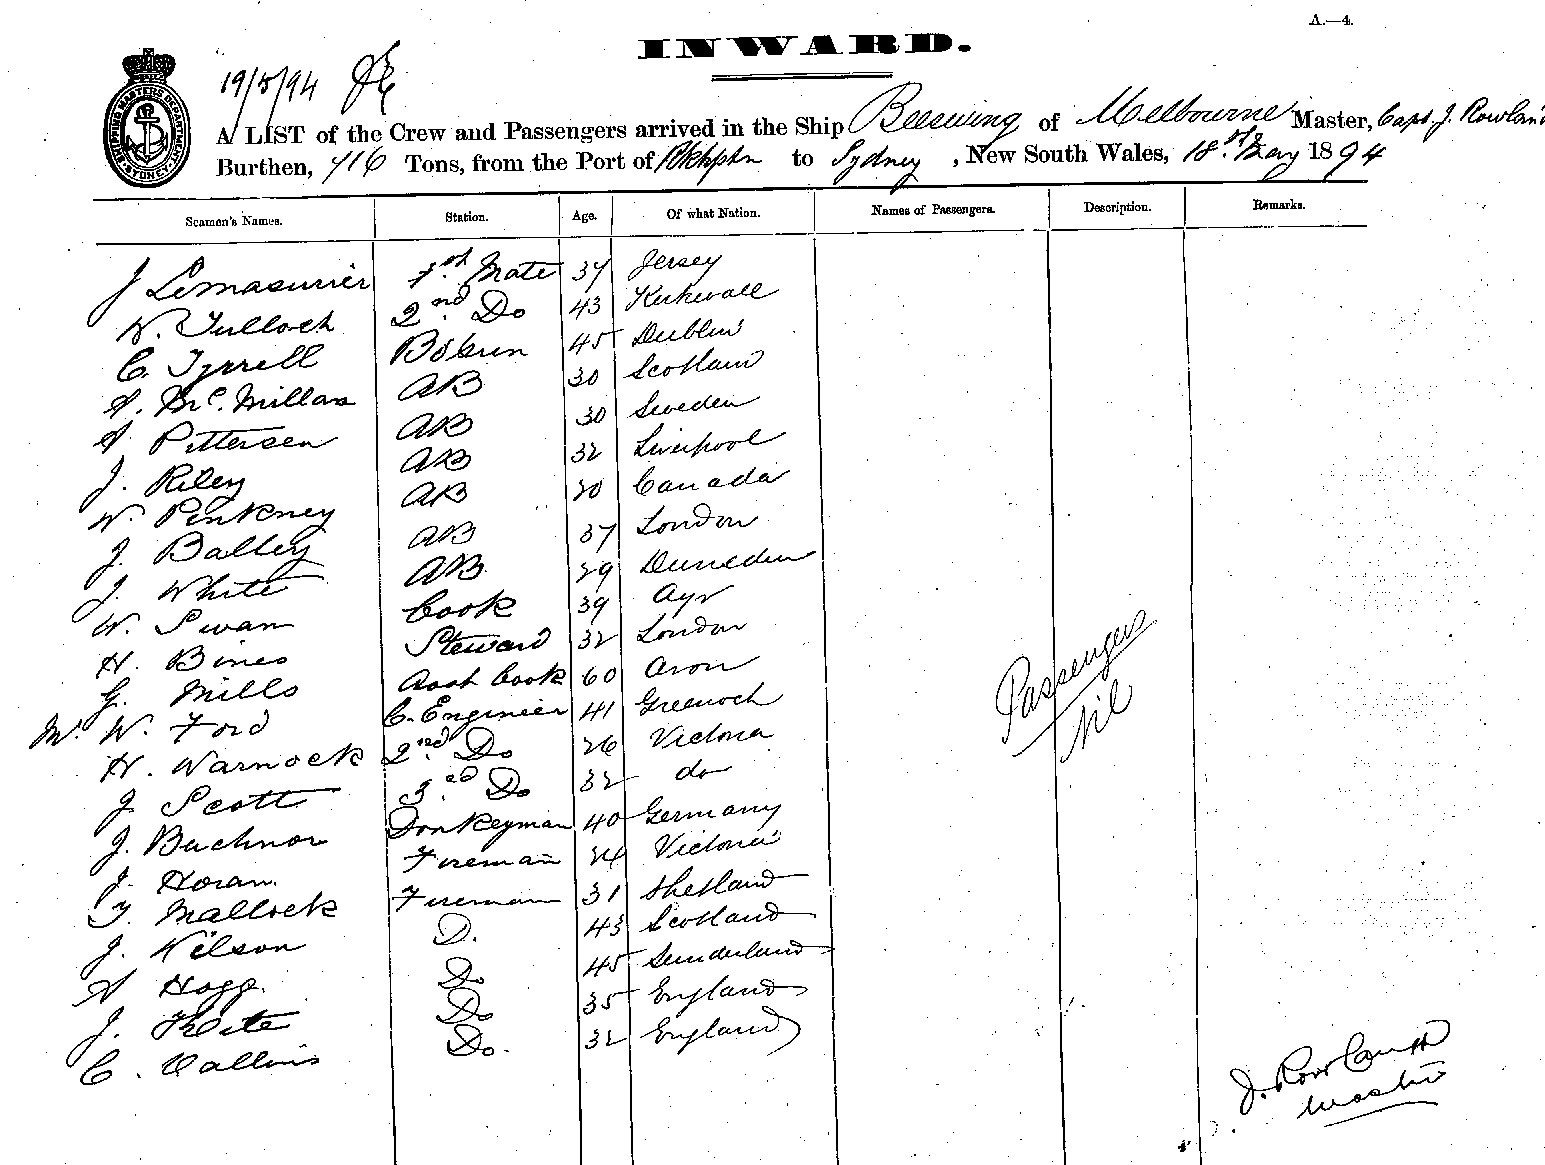 A.—4.
INWARD.
SHIPPING MASTERS DEPARTMENT SYDNEY
19/5/94
A LIST of the Crew and Passengers arrived in the Ship Beeswing of Melbourne Master, Capt. J. Rowlan
Burthen, 416 Tons, from the Port of to Sydney, New South Wales, 18 May 1894
Seamen's Names. Station. Age. Of what Nation. Names of Passengers. Description. Remarks.
J Lemasurier 1st Mate 37 Jersey
W. Tulloch 2nd Do 43 Kirkwall
C. Tyrrell Bosun 45 Dublin
A. McMillan AB 30 Scotland
A Pittersen AB 30 Sweden
J. Riley AB 32 Liverpool
W. Pinkney AB 20 Canada
J. Balley AB 37 London
J. White AB 29 Dunedin
W. Swan Cook 39 Ayr
H. Bines Steward 32 London
G. Mills Cook 60
Mr W. Ford C. Engineer 41 Greenock
H. Warnock 2nd Do 26 Victoria
J Scott 3rd Do 32 do
J. Buchnor Donkeyman 40 Germany
J. Horan Fireman 24 Victoria
T. Mallock Fireman 31 Shetland
J. Wilson D. 43 Scotland
A Hogg. Do 45 Sunderland
J. Do 35 England
C. Do. 32 England
Passengers
Nil
J. Rowland
Master